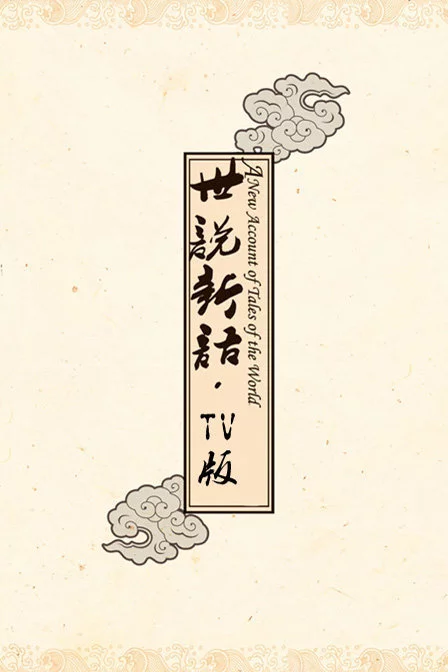 世說新話·TV版
A New Account of Tales of the World